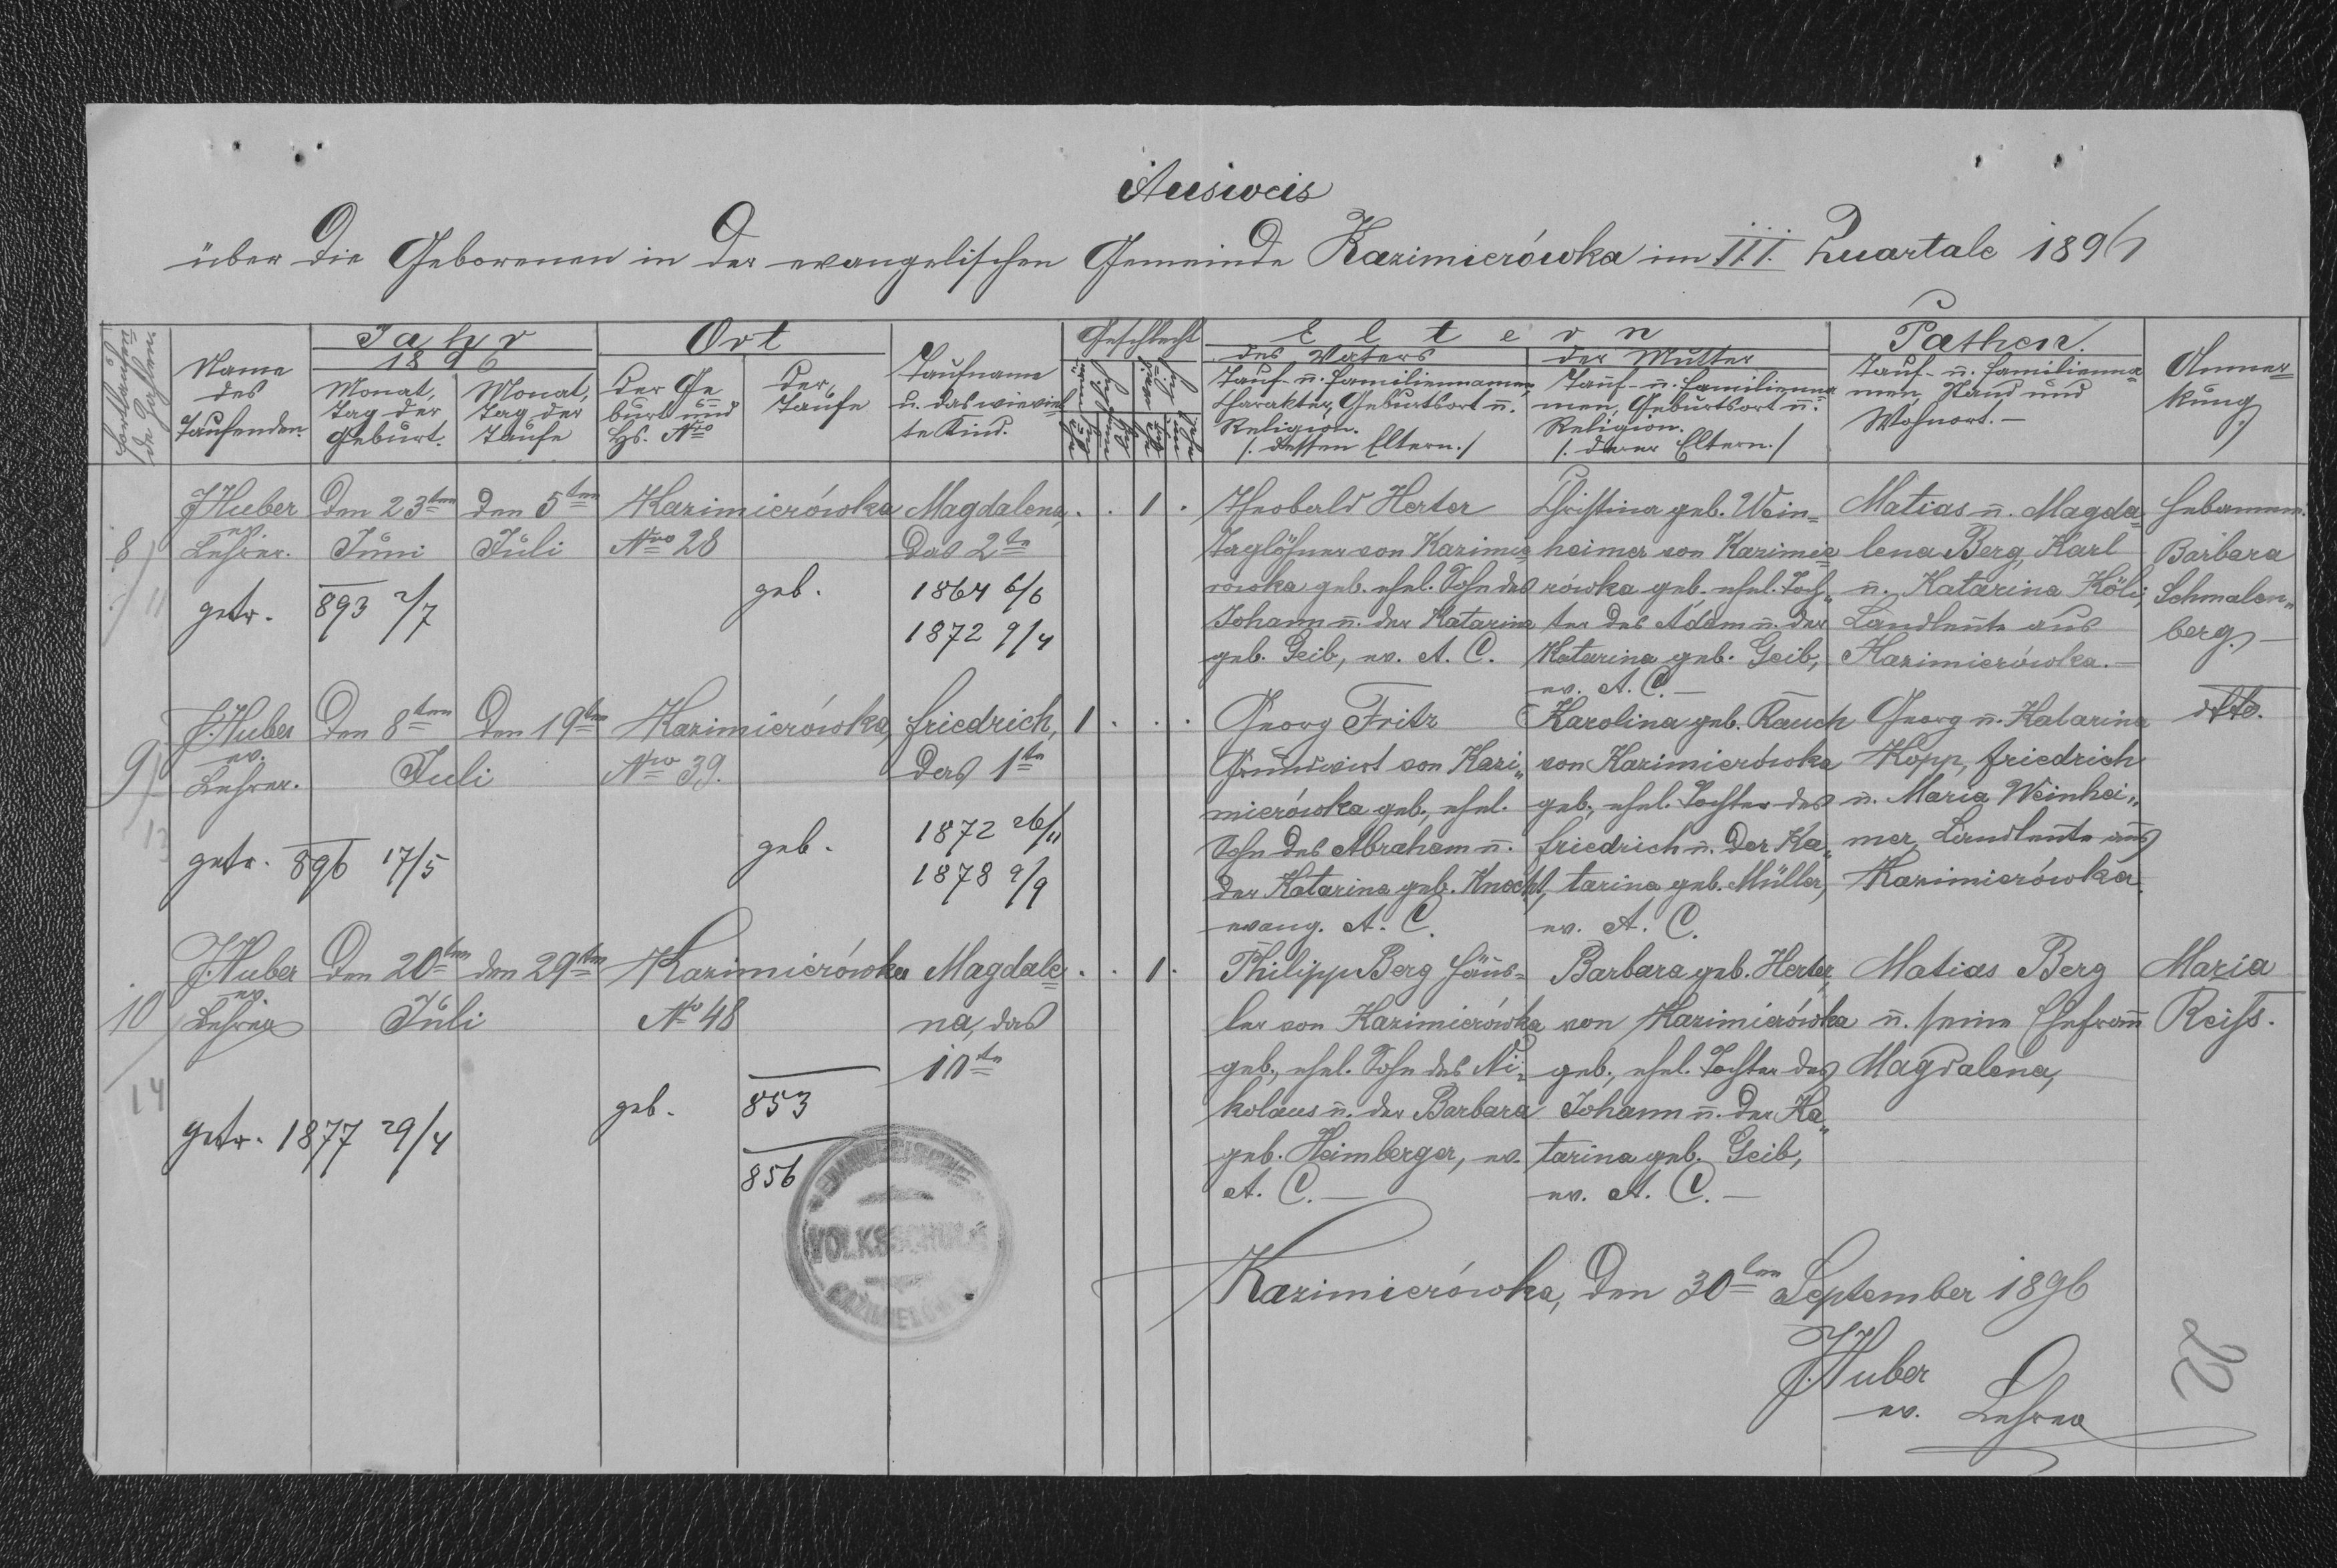 Ausweis
über die Geborenen in der evangelischen Gemeinde Kazimierówka im III. Quartale 1896
Fortlaufen=
de Zahlen.
Name
des
Taufenden.
Jahr
1896
Monat,
Tag der
Geburt.
Monat,
Tag der
Taufe
Ort
der Ge=
burt und
Hs. Nro
der
Taufe
Taufname
u. das wieviel=
te Kind.
Geschlecht
Eltern
des Vaters
Tauf- u. Familiennamen,
Charakter, Geburtsort u.
Religion.
/. dessen Eltern./
der Mutter
Tauf- u. Familienna=
men, Geburtsort u.
Religion.
/. derer Eltern./
Pathen.
Tauf- u. Familienna=
men, Stand und
Wohnort.—
Anmer=
kung.
8
11
J. Huber
ev.
Lehrer.
Den 23ten
Juni
Den 5ten
Juli
Kazimierówka
Nro 28
Magdalena,
Das 2te
. . 1 .
Theobald Herter
Taglöhner von Kazimie=
rówka geb. ehel. Sohn des
Johann u. der Katarina
geb. Geib, ev. A. C.
Christina geb. Wein=
heimer von Kazimie=
rówka geb. ehel. Toch„
ter des Adam u. der
Katarina geb. Geib,
ev. A. C.—
Matias u. Magda=
lena Berg, Karl
u. Katarina Köli,
Landleute aus
Kazimierówka.—
Hebamme.
Barbara
Schmalen„
berg.—
getr. 893 2/7
geb.
1864 6/6
1872 9/4
9
13
J. Huber
ev.
Lehrer.
Den 8ten
Den 19ten
Juli
Kazimierówka,
Nro 39.
Friedrich,
Das 1te
1 . . .
Georg Fritz
Grundwirt von Kazi„
mierówka geb., ehel.
Sohn des Abraham u.
der Katarina geb. Knecht,
evang. A. C.
Karolina geb. Rauch
von Kazimierówka
geb., ehel. Tochter des
Friedrich u. der Ka„
tarina geb. Müller,
ev. A. C.
Georg u. Katarina
Kopp, Friedrich
u. Maria Weinhei„
mer, Landleute aus
Kazimierówka.
dtto.
getr. 896 17/5
geb.
1872 26/11
1878 9/9
10
14
J. Huber
ev.
Lehrer
Den 20ten
den 29ten
Juli
Kazimierówka
No 48
Magdale=
na, das
10te
. . 1 .
Philipp Berg Häus=
ler von Kazimierówka
geb., ehel. Sohn des Ni=
kolaus u. der Barbara
geb. Heimberger, ev.
A. C.—
Barbara geb. Herter,
von Kazimierówka
geb., ehel. Tochter des
Johann u. der Ka„
tarina geb. Geib,
ev. A. C.—
Matias Berg
u. seine Ehefrau
Magdalena,
Maria
Reiss.
getr. 1877 29/4
geb.
853
856
VOLKSSCHULE
Kazimierówka, den 30ten September 1896
J. Huber
ev. Lehrer
22